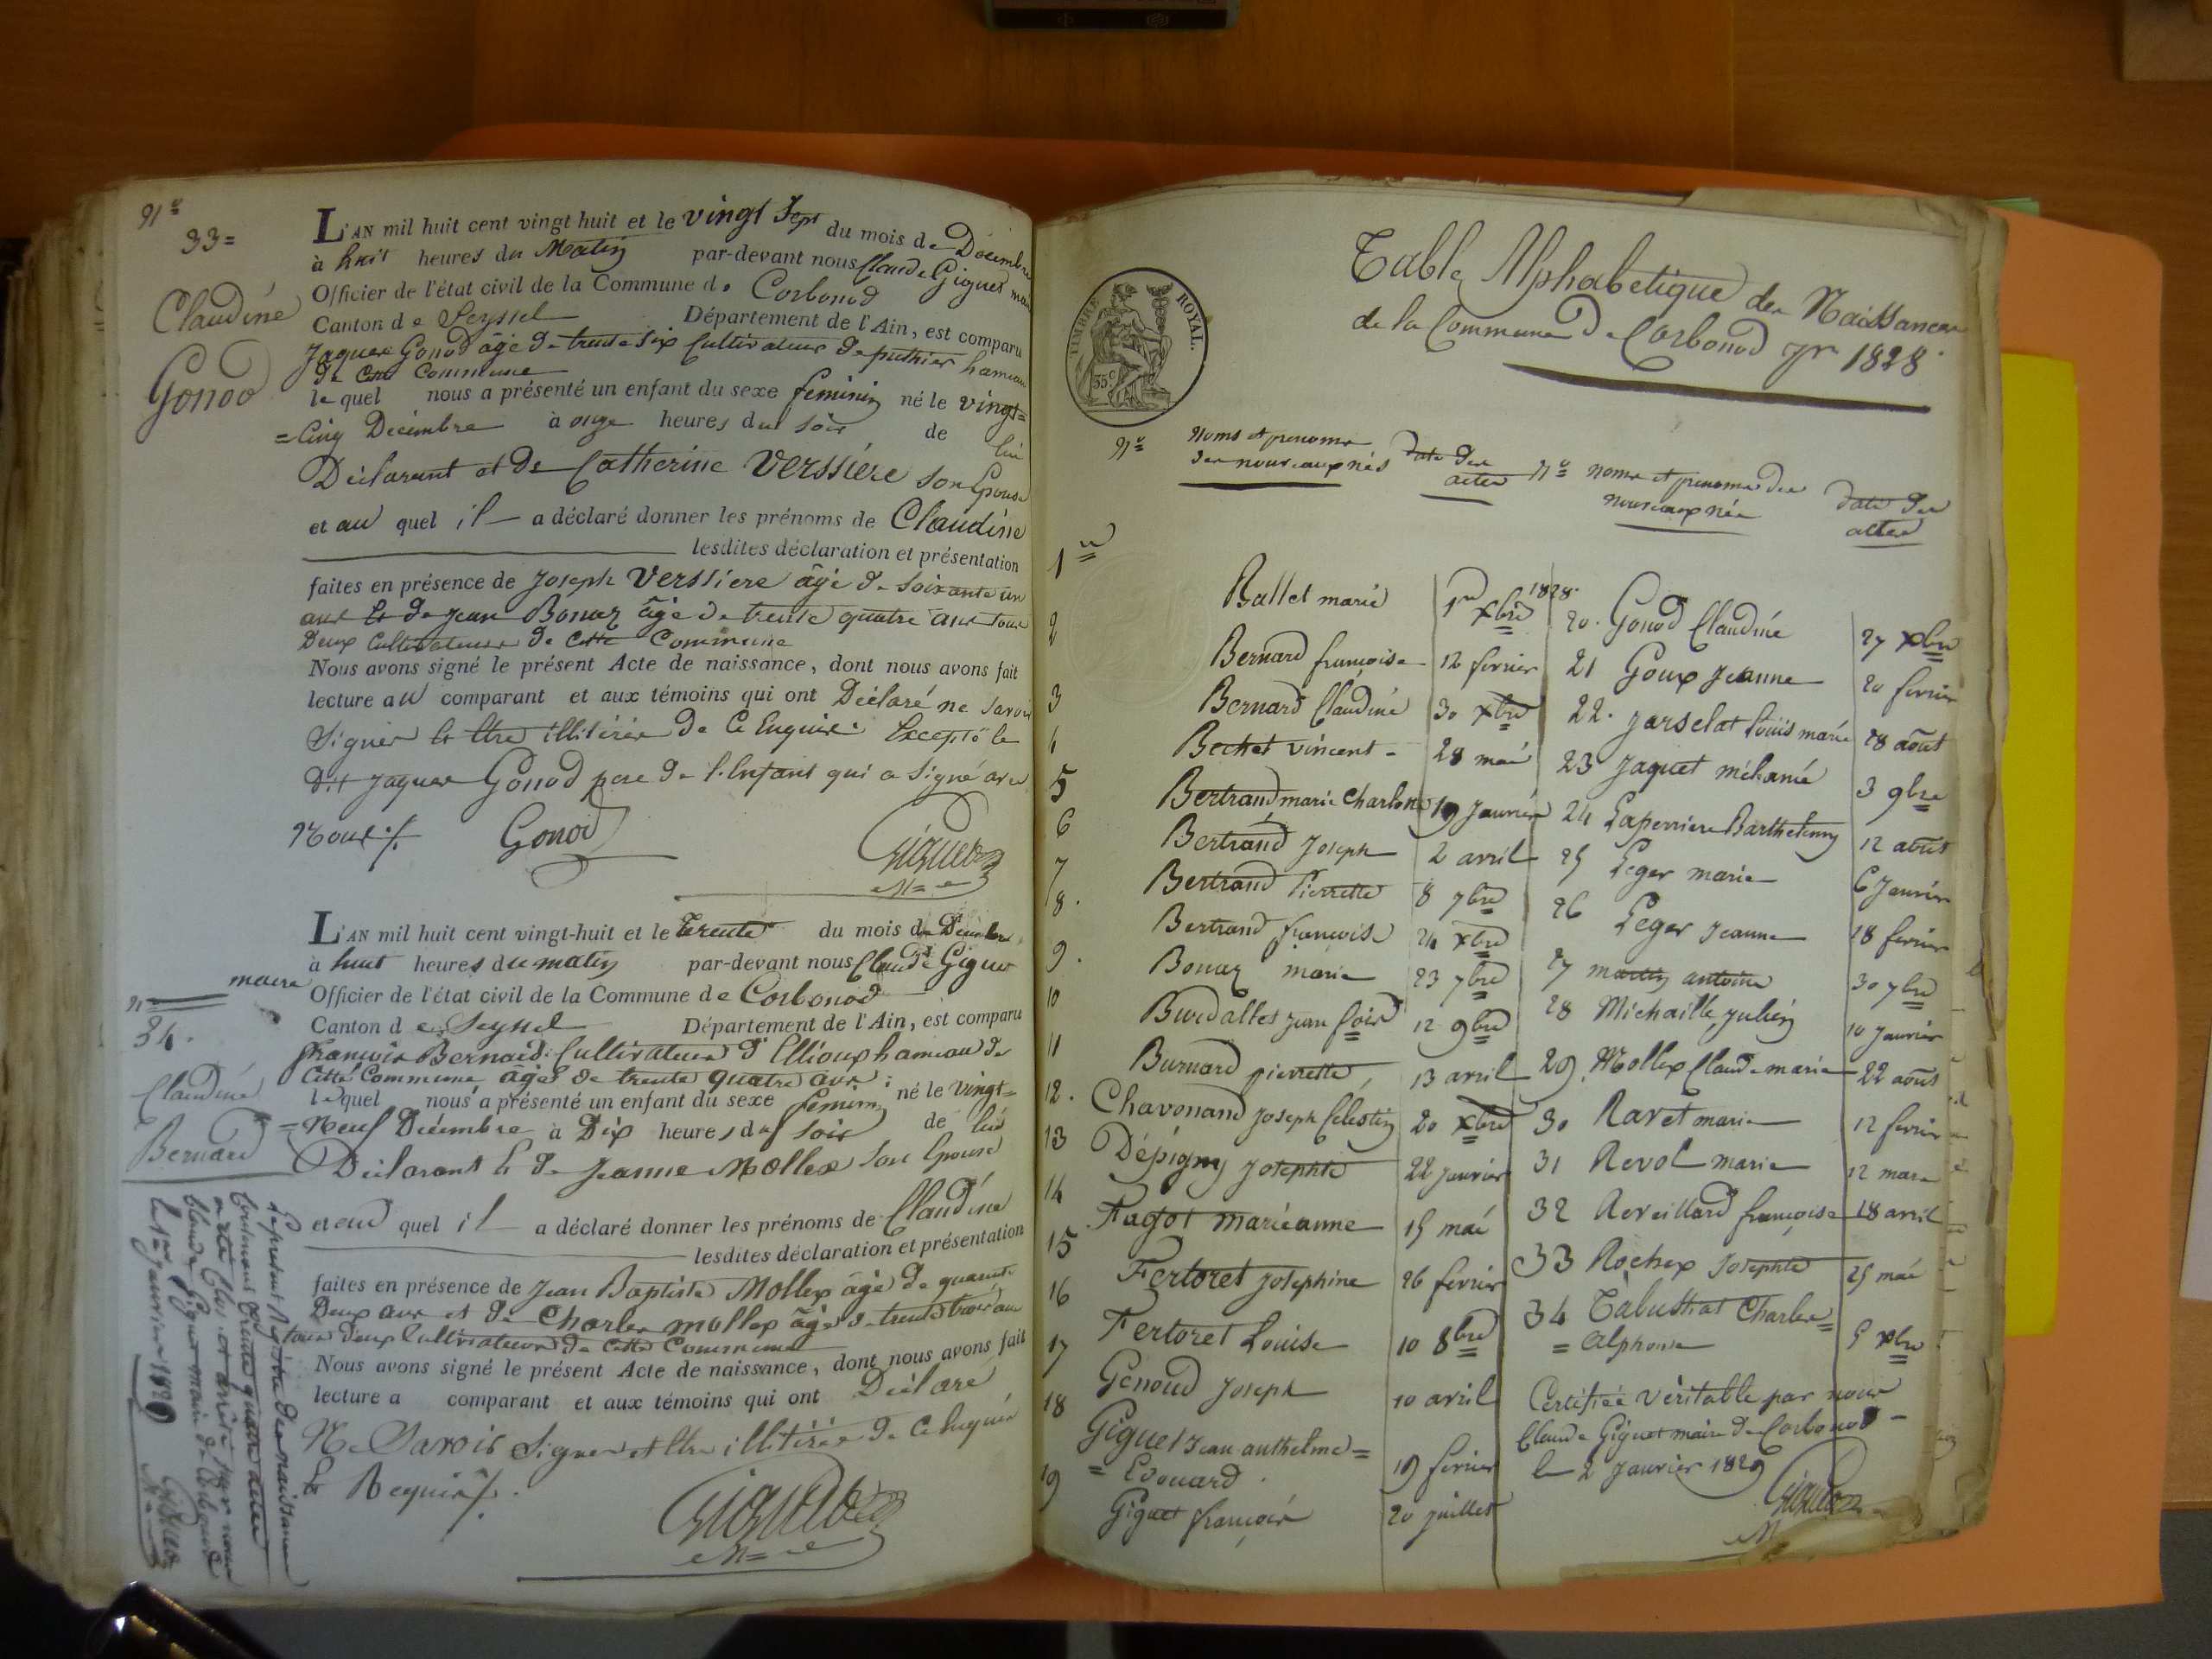 N°
33=
Claudine
Gonod
L'AN mil huit cent vingt huit et le vingt Sept du mois de Décembre
à huit heures du Matin par-devant nous Claude Giguet maire
Officier de l'état civil de la Commune de Corbonod
Canton de Seyssel Département de l'Ain, est comparu
Jaques Gonod âgé de trente six Cultivateur de puthier hameau
de cette Commune
le quel nous a présenté un enfant du sexe feminin né le vingt=
=Cinq Décembre à onze heures du soir de lui
Déclarant et de Catherine Verssiere son Epouse
et au quel il a déclaré donner les prénoms de Claudine
lesdites déclaration et présentation
faites en présence de Joseph Verssiere âgé de soixante un
ans et de Jean Bonaz âgé de trente quatre ans tous
Deux Cultivateurs de Cette Commune
Nous avons signé le présent Acte de naissance, dont nous avons fait
lecture au comparant et aux témoins qui ont Déclaré ne savoir
Signer et être illitérés de Ce Enquis. Excepté le
dit Jaques Gonod pere de l'Enfant qui a Signé avec
Nous ./.
Gonod
Giguet
M=e
N°
34.
Claudine
Bernard
L'AN mil huit cent vingt-huit et le trente du mois de Décembre
à huit heures du matin par-devant nous Claude Giguet
maire Officier de l'état civil de la Commune de Corbonod
Canton de Seyssel Département de l'Ain, est comparu
françois Bernard Cultivateur d'Ellioux hameau de
Cette Commune âgé de trente quatre ans
le quel nous a présenté un enfant du sexe feminin né le vingt=
=Neuf Décembre à Dix heures du soir de lui
Déclarant & de Jeanne Mollex son Epouse
et au quel il a déclaré donner les prénoms de Claudine
lesdites déclaration et présentation
faites en présence de Jean Baptiste Mollex âgé de quarente
Deux ans et de Charles mollex âgé de trente trois ans
tous deux Cultivateurs de Cette Commune
Nous avons signé le présent Acte de naissance, dont nous avons fait
lecture a comparant et aux témoins qui ont Déclaré
Ne Savoir Signer et être illitérés de ce enquis
& Requis ./.
Giguet
M=e
Le présent Registre des naissances
Contenant trente quatre actes
a été Clos et arrêté par nous
Claude Giguet maire de Corbonod
le 1er janvier 1829
Giguet
Table Alphabetique des Naissances
de la Commune de Corbonod pr 1828.
TIMBRE ROYAL.
35 c
N° Noms et prenoms des nouveaux nés date des actes N° noms et prenoms des nouveaux nés date des actes
1er Ballet marie 1er xbre 1828.
2 Bernard françoise 12 fevrier
3 Bernard Claudine 30 xbre
4 Bechet vincent 28 mai
5 Bertrand marie Charlotte 19 Janvier
6 Bertrand Joseph 2 avril
7 Bertrand Pierrette 8 7bre
8. Bertrand françoise 24 xbre
9. Bonaz marie 23 7bre
10 Burdallet jean 12 9bre
11 Burnard pierrette 13 avril
12. Chavonand Joseph Celestin 20 xbre
13 Dépigny Josephte 22 janvier
14 Fagot marieanne 15 mai
15 Fertoret Josephine 26 fevrier
16 Fertoret Louise 10 8bre
17 Genoud Joseph 10 avril
18 Giguet Jean anthelme=
= Edouard. 19 fevrier
19 Giguet françois 20 juillet
20. Gonod Claudine 27 xbre
21 Goux Jeanne 20 fevrier
22. Jarselat Louis marie 28 août
23 Jaquet mélanie 3 9bre
24 Laperriere Barthelemy 12 août
25 Leger marie 6 Janvier
26 Leger Jeanne 18 fevrier
27 martin antoine 30 7bre
28 Michaille Julien 10 janvier
29. Mollex Claude marie 22 août
30 Ravet marie 12 fevrier
31 Revol marie 12 mars
32 Reveillard françoise 18 avril
33 Rochex Josephte 25 mai
34 Tabustat Charles=
= Alphonse 5 xbre
Certifiée véritable par nous
Claude Giguet maire de Corbonod
le 2 Janvier 1829
Giguet
M